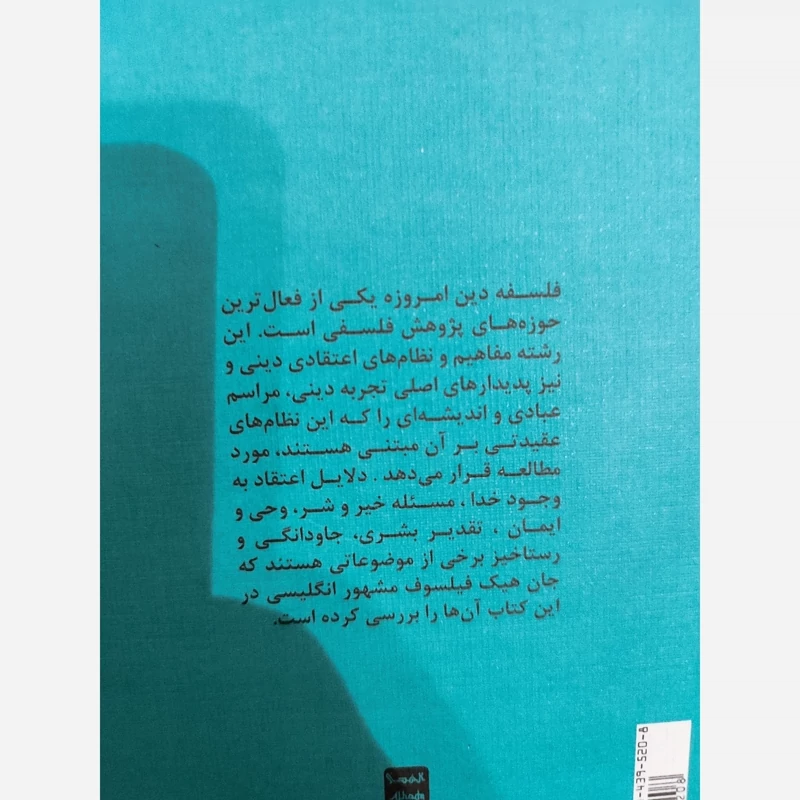 فلسفه دین امروزه یکی از فعال‌ترین
حوزه‌های پژوهش فلسفی است. این
رشته مفاهیم و نظام‌های اعتقادی دینی و
نیز پدیدارهای اصلی تجربه دینی، مراسم
عبادی و اندیشه‌ای را که این نظام‌های
عقیدتی بر آن مبتنی هستند، مورد
مطالعه قرار می‌دهد. دلایل اعتقاد به
وجود خدا، مسئله خیر و شر، وحی و
ایمان، تقدیر بشری، جاودانگی و
رستاخیز برخی از موضوعاتی هستند که
جان هیک فیلسوف مشهور انگلیسی در
این کتاب آن‌ها را بررسی کرده است.
-439-520-8
Alhoda